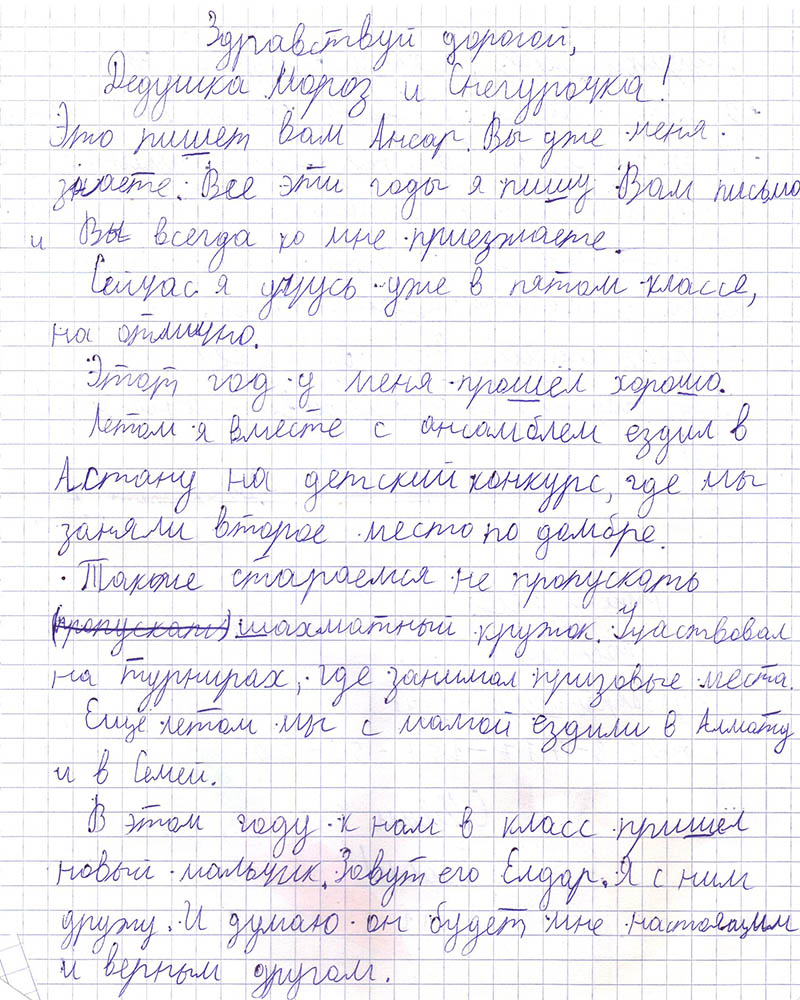 Здравствуй дорогой,
Дедушка Мороз и Снегурочка!
Это пишет вам Ансар. Вы уже меня
знаете. Все эти годы я пишу Вам письмо
и Вы всегда ко мне приезжаете.
Сейчас я учусь уже в пятом классе,
на отлично.
Этот год у меня прошёл хорошо.
Летом я вместе с ансамблем ездил в
Астану на детский конкурс, где мы
заняли второе место по домбре.
Также стараемся не пропускать
(пропускать) шахматный кружок. Участвовал
на турнирах, где занимал призовые места.
Еще летом мы с мамой ездили в Алмату
и в Семей.
В этом году к нам в класс пришёл
новый мальчик. Зовут его Елдар. Я с ним
дружу. И думаю он будет мне настоящим
и верным другом.